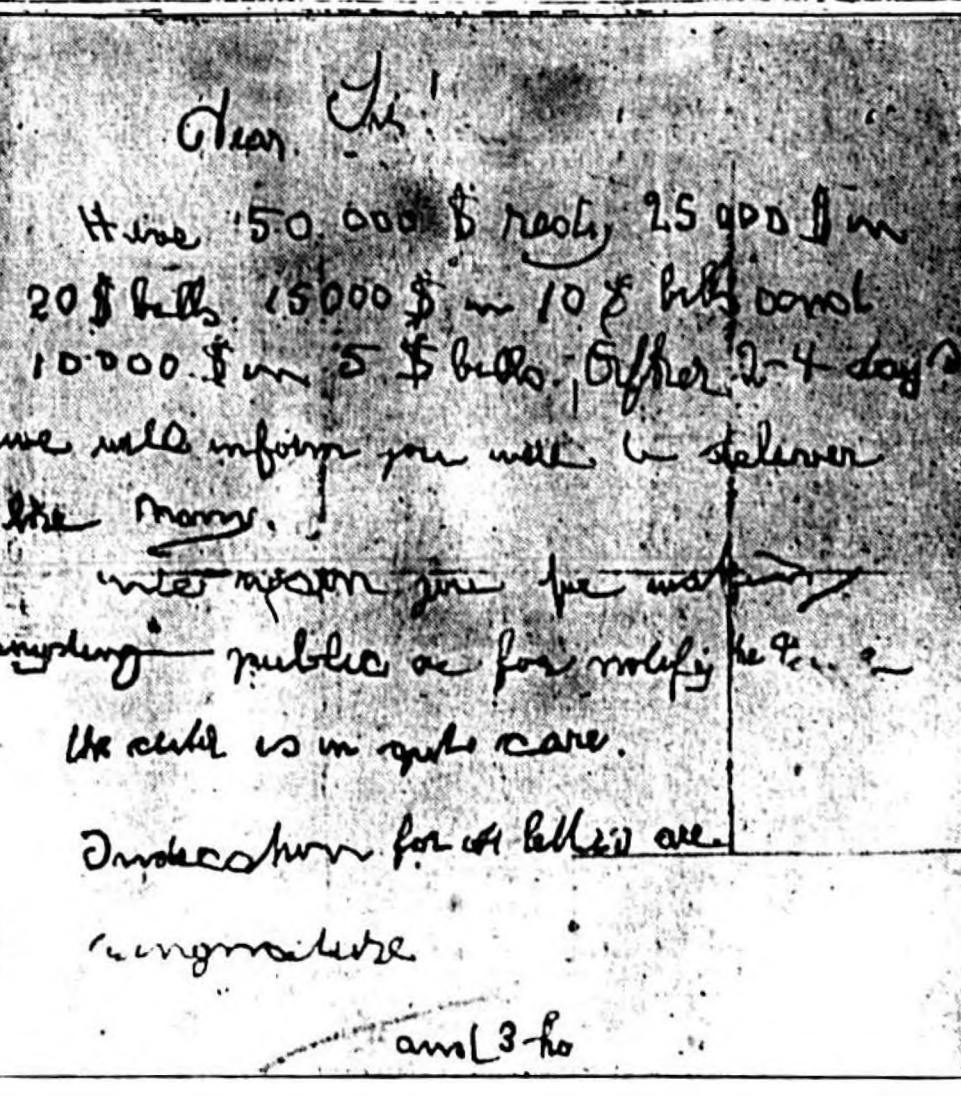 Dear Sir!
Have 50.000 $ redy 25 000 $ in
20 $ bills. 15000 $ in 10 $ bills and
10.000 $ in 5 $ bills. After 2-4 days
we will inform you were to deliver
the Mony.
you for
anyding public or for notify the
the child is in gute care.
Indication for all letters are
singnature
and 3 ho